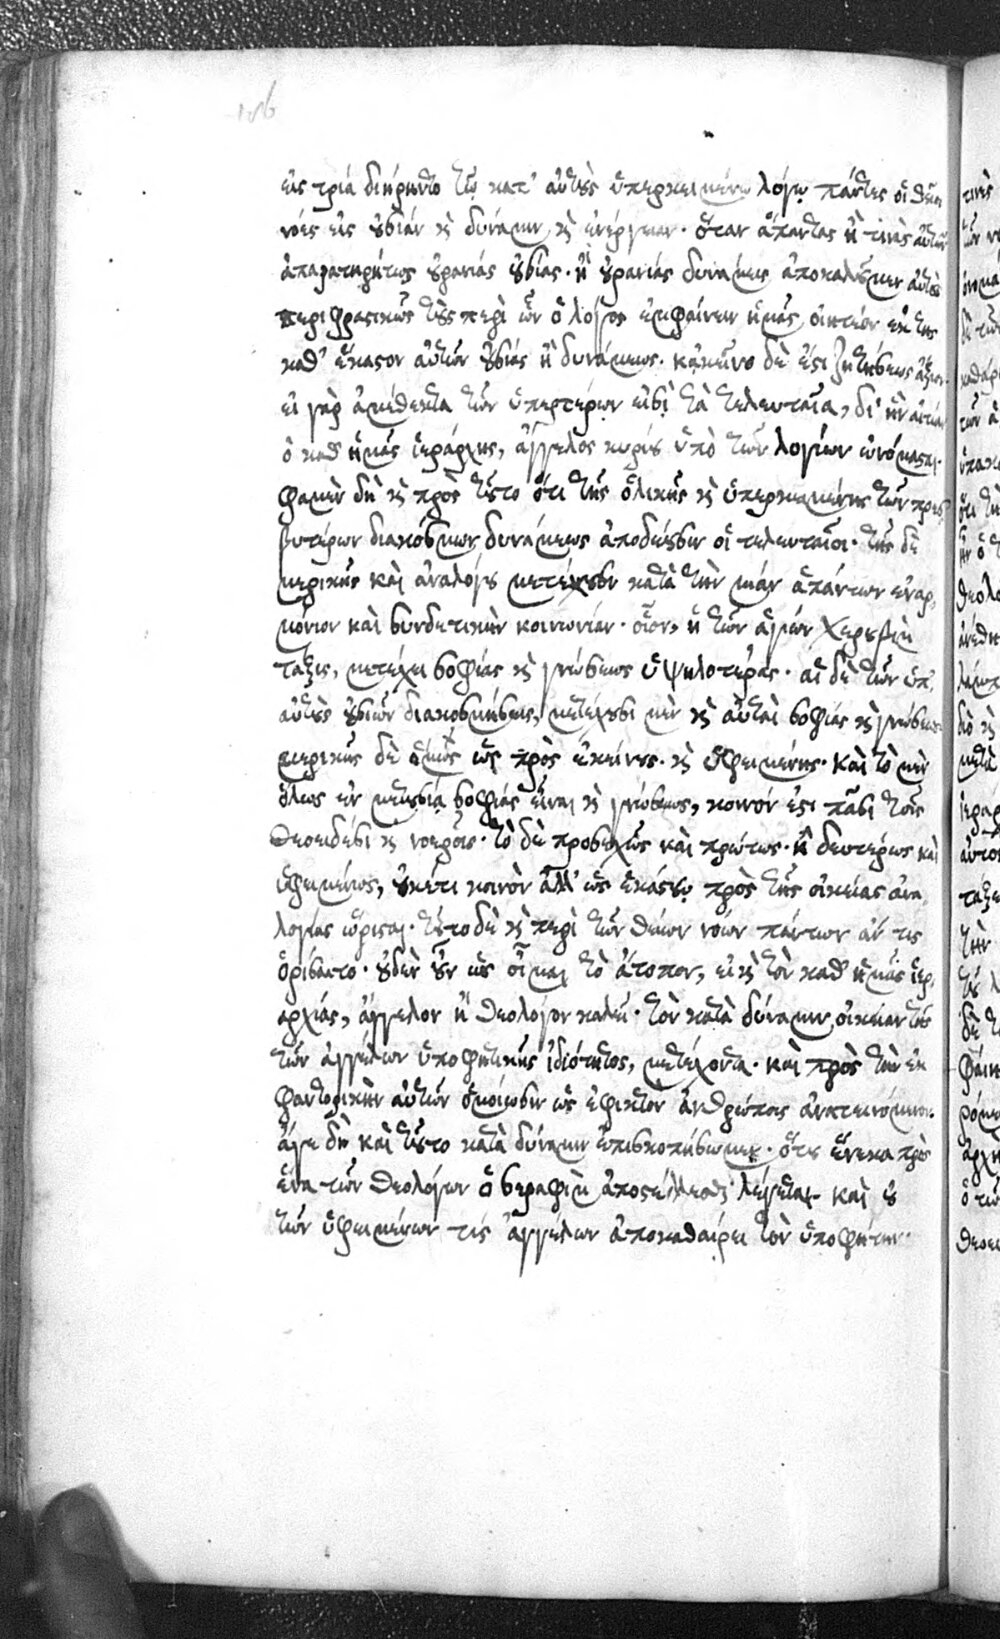 εἰς τρία διῄρηνται τῷ κατ' αὐτοὺς ὑπερκειμένῳ λόγῳ πάντες οἱ θεῖοι
νόες εἰς οὐσίαν καὶ δύναμιν, καὶ ἐνέργειαν. ὅταν ἅπαντας ἢ τινὰς αὐτῶν
ἀπαρατηρήτως οὐρανίας οὐσίας. ἢ οὐρανίας δυνάμεις ἀποκαλοῦμεν αὐτοὺς
περιφραστικῶς τοὺς περὶ ὧν ὁ λόγος ἐμφαίνειν ἡμᾶς οἰητέον ἐκ τῆς
καθ' ἕκαστον αὐτῶν οὐσίας ἢ δυνάμεως. κἀκεῖνο δὲ ἐστι ζητήσεως ἄξιον.
εἰ γὰρ ἀμέθεκτα τῶν ὑπερτέρων εἰσὶ τὰ τελευταῖα, δι' ἣν αἰτίαν
ὁ καθ' ἡμᾶς ἱεράρχης, ἄγγελος κυρίου ὑπὸ τῶν λογίων ὠνόμασται.
φαμὲν δὴ καὶ πρὸς τοῦτο ὅτι τῆς ὁλικῆς καὶ ὑπερκειμένης τῶν πρεσ
βυτέρων διακόσμων δυνάμεως ἀποδέουσιν οἱ τελευταῖοι. τῆς δὲ
μερικῆς καὶ ἀναλόγου μετέχουσιν κατὰ τὴν μίαν ἁπάντων ἐναρ
μόνιον καὶ συνδετικὴν κοινωνίαν. οἷον, ἡ τῶν ἁγίων Χερουβὶμ
τάξις, μετέχει σοφίας καὶ γνώσεως ὑψηλοτέρας. αἱ δὲ τῶν ὑπ'
αὐτοὺς οὐσιῶν διακοσμήσεις, μετέχουσι μὲν καὶ αὐταὶ σοφίας καὶ γνώσεως
μερικῆς δὲ ὅμως ὡς πρὸς ἐκείνους. καὶ ὑφειμένης. καὶ τὸ μὲν
ὅλως ἐν μετουσίᾳ σοφίας εἶναι καὶ γνώσεως, κοινόν ἐστι πᾶσι τοῖς
θεοειδέσι καὶ νοεροῖς. τὸ δὲ προσεχῶς καὶ πρώτως. ἢ δευτέρως καὶ
ὑφειμένως, οὐκέτι κοινὸν ἀλλ' ὡς ἑκάστῳ πρὸς τῆς οἰκείας ἀνα
λογίας ὥρισται. τοῦτο δὲ καὶ περὶ τῶν θείων νόων πάντων ἄν τις
ὁρίσαιτο. οὐδὲν οὖν ὡς οἶμαι τὸ ἄτοπον, εἰ καὶ τὸν καθ' ἡμᾶς ἱερ
αρχίας, ἄγγελον ἢ θεολόγον καλεῖ. τὸν κατὰ δύναμιν οἰκείαν τῆς
τῶν ἀγγέλων ὑποφητικῆς ἰδιότητος, μετέχοντα. καὶ πρὸς τὴν ἐκ
φαντορικὴν αὐτῶν ὁμοίωσιν ὡς ἐφικτὸν ἀνθρώποις ἀνατεινόμενον.
ἄγε δὴ καὶ τοῦτο κατὰ δύναμιν ἐπισκοπήσωμεν. ὅτου ἕνεκα πρὸς
ἕνα τῶν θεολόγων ὁ σεραφὶμ ἀποστέλλεσθαι λέγεται. καὶ οὐ
τῶν ὑφειμένων τις ἀγγέλων ἀποκαθαίρει τὸν ὑποφήτην.